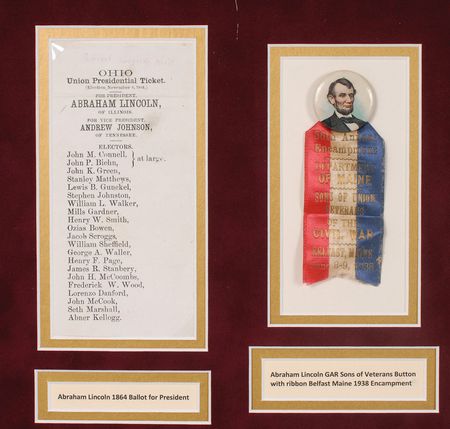 OHIO
Union Presidential Ticket.
(Election, November 8, 1864.)
FOR PRESIDENT,
ABRAHAM LINCOLN,
OF ILLINOIS.
FOR VICE PRESIDENT,
ANDREW JOHNSON,
OF TENNESSEE.
ELECTORS.
John M. Connell, } at large.
John P. Biehn,
John K. Green,
Stanley Matthews,
Lewis B. Gunckel,
Stephen Johnston,
William L. Walker,
Mills Gardner,
Henry W. Smith,
Ozias Bowen,
Jacob Scroggs,
William Sheffield,
George A. Waller,
Henry F. Page,
James R. Stanbery,
John H. McCoombs,
Frederick W. Wood,
Lorenzo Danford,
John McCook,
Seth Marshall,
Abner Kellogg.
Abraham Lincoln 1864 Ballot for President
Annual
Encampment
DEPARTMENT
OF MAINE
SONS OF UNION
VETERANS
OF THE
CIVIL WAR
BELFAST, MAINE
8-9, 1938
Abraham Lincoln GAR Sons of Veterans Button
with ribbon Belfast Maine 1938 Encampment